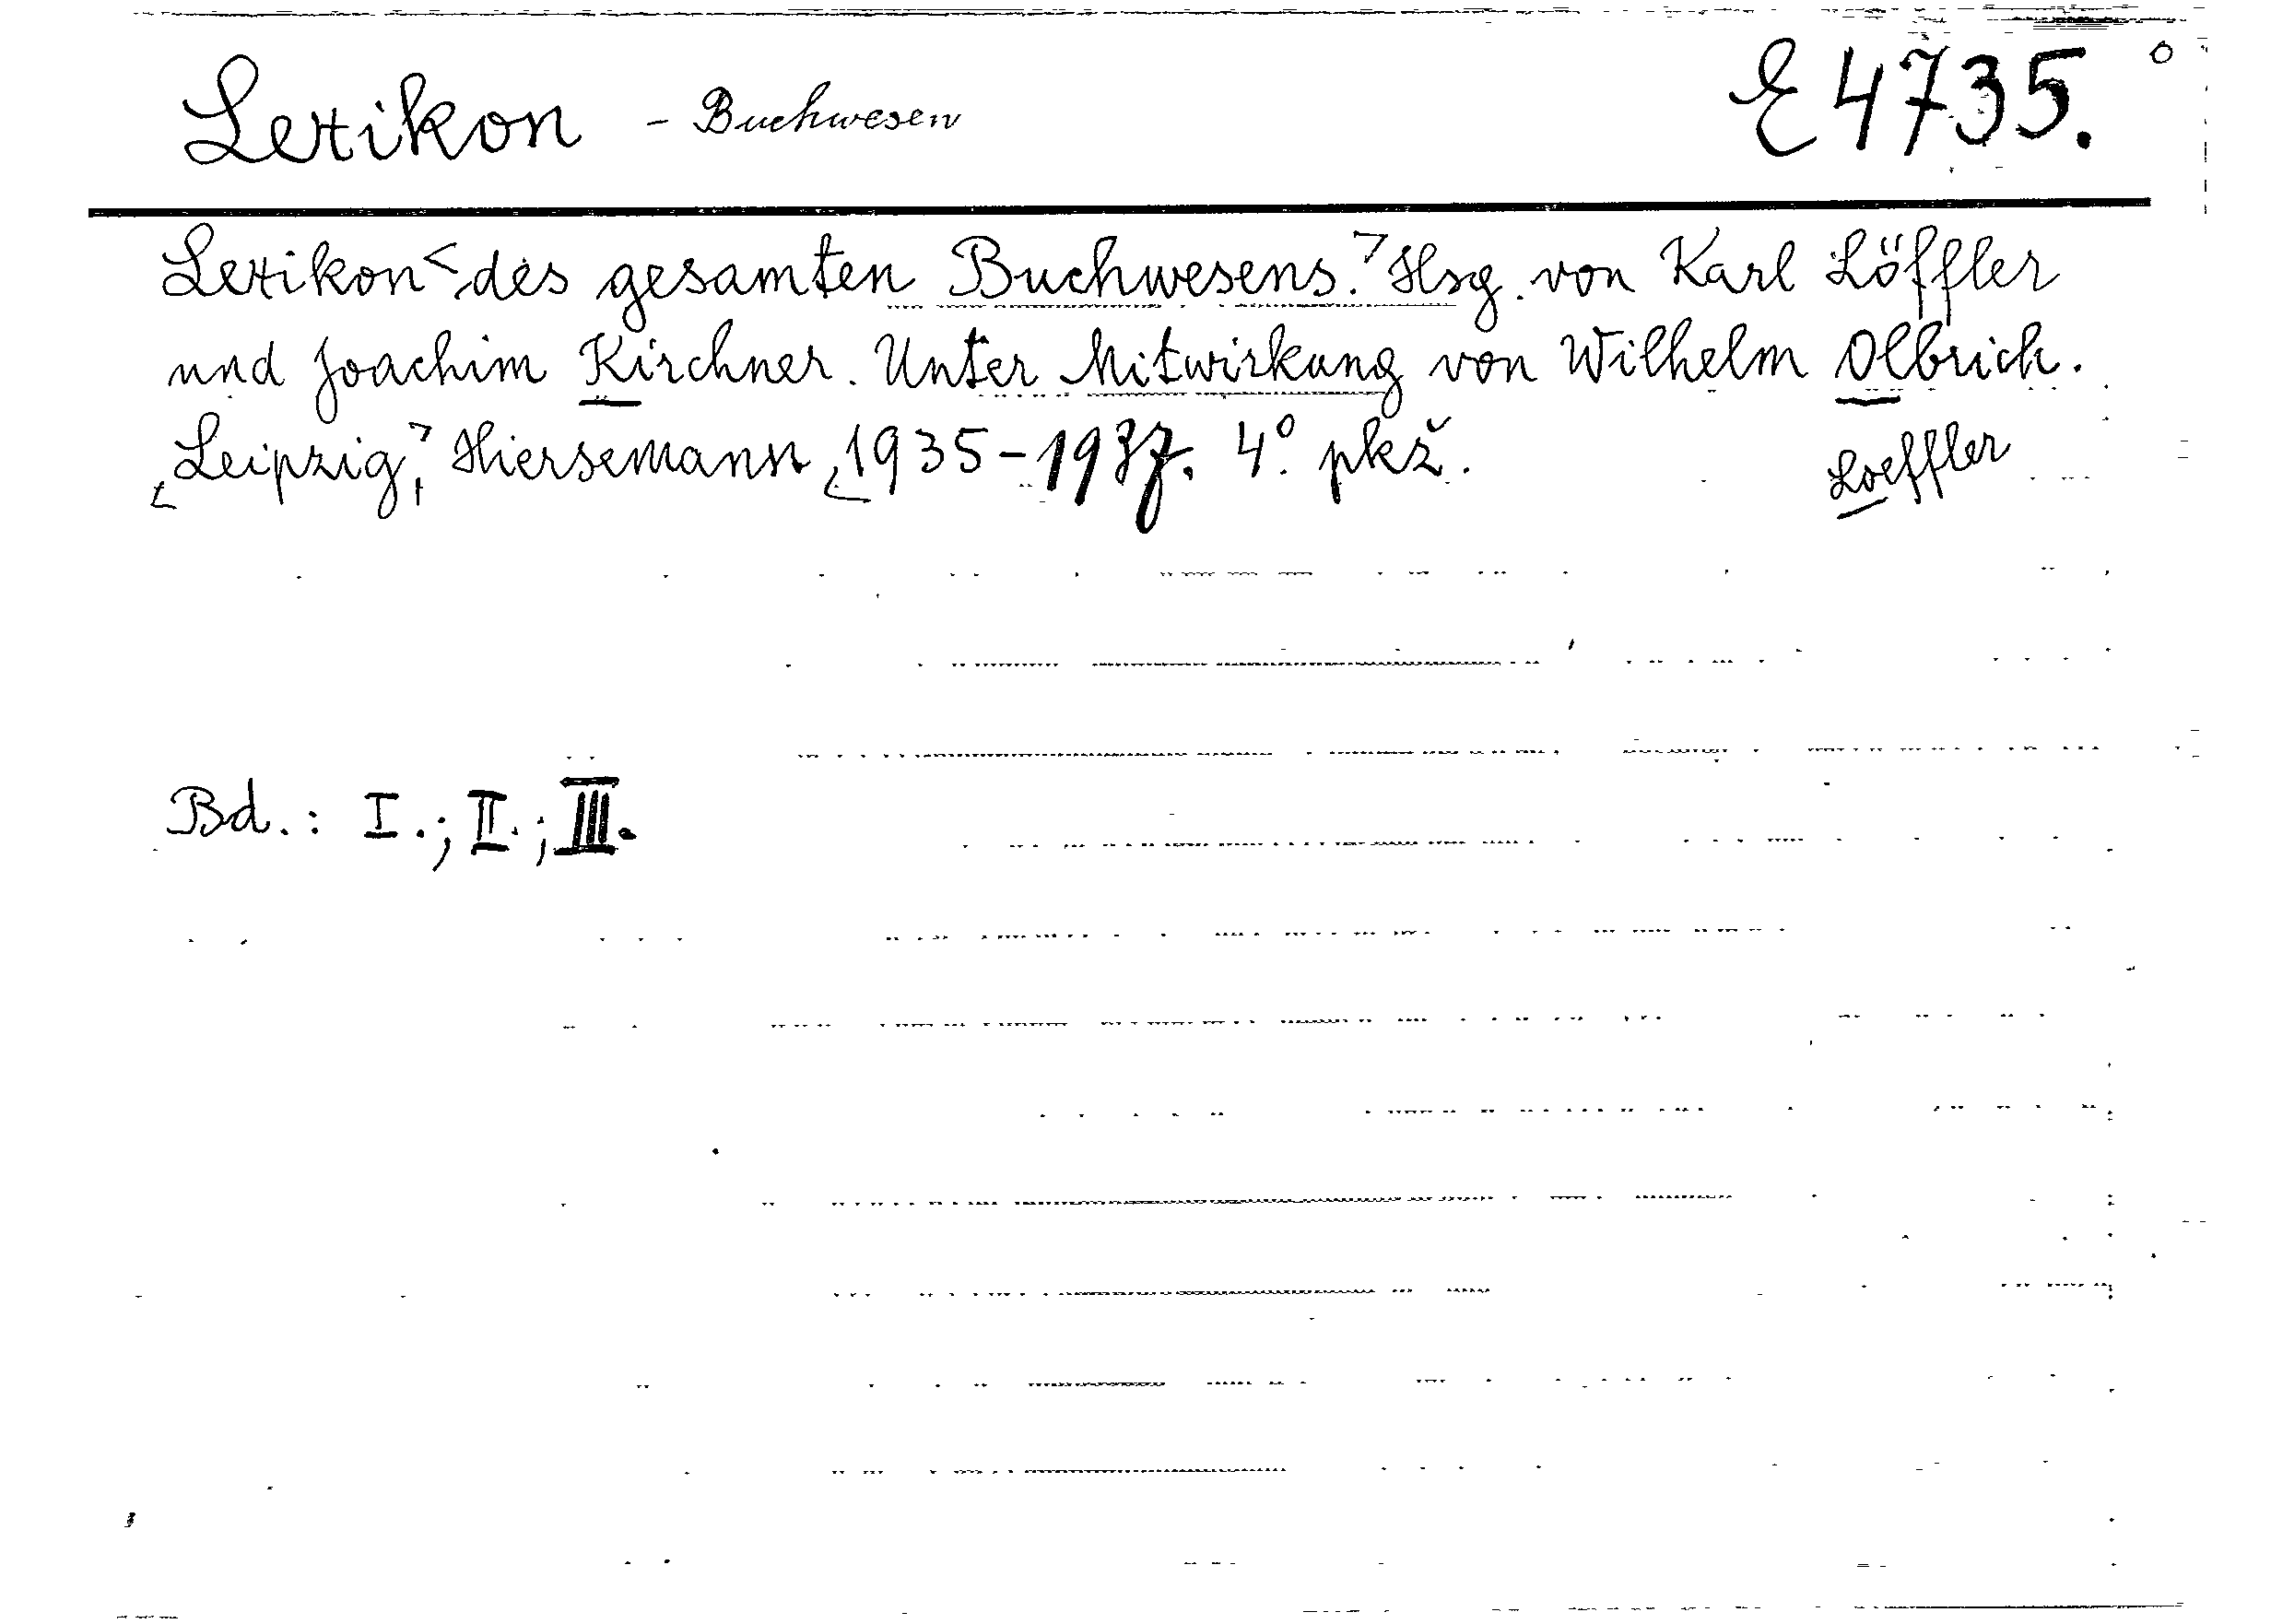 Lexikon - Buchwesen E 4735.
Lexikon < des gesamten Buchwesens. > Hsg. von Karl Löffler
und Joachim Kirchner. Unter Mitwirkung von Wilhelm Olbrich.
Leipzig, Hiersemann, 1935-1937. 4° pkž.
Loeffler
Bd.: I.; II.; III.